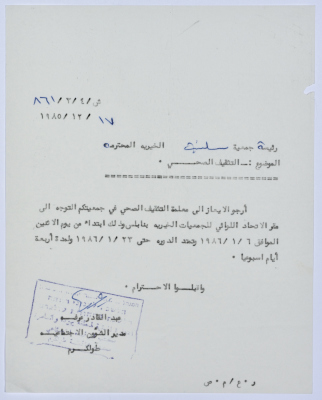 ش/٤/٢/٨٦١
١٧/١٢/١٩٨٥
رئيسة جمعية الخيريه المحترمه
الموضوع :ــ التثقيف الصحــــي
أرجو الايعاز الى معلمة التثقيف الصحي في جمعيتكم التوجه الى
مقر الاتحاد اللوائي للجمعيات الخيريه بنابلس وذلك ابتداء من يوم الاثنين
الموافق ١٩٨٦/١/٦ وتمتد الدوره حتى ١٩٨٦/١/٢٣ ولمدة أربعة
أيام اسبوعيا ٠
واقبلــوا الاحتــرام ٠
عبد القادر
مدير الشؤون الاجتماعيه
طولكــرم
ر٠ع/م٠ص